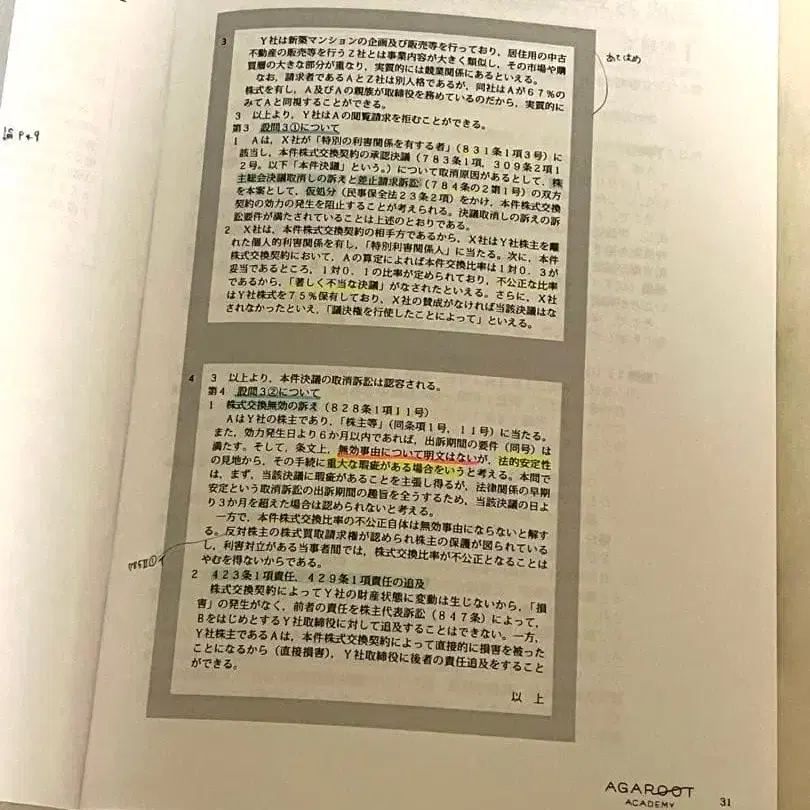 3
Y社は新築マンションの企画及び販売等を行っており，居住用の中古
不動産の販売等を行うZ社とは事業内容が大きく類似し，その市場や購
買層の大きな部分が重なり，実質的には競業関係にあるといえる。
なお，請求者であるAとZ社は別人格であるが，同社はAが67％の
株式を有し，A及びAの親族が取締役を務めているのだから，実質的に
みてAと同視することができる。
3 以上より，Y社はAの閲覧請求を拒むことができる。
第3 設問3①について
1 Aは，X社が「特別の利害関係を有する者」（831条1項3号）に
該当し，本件株式交換契約の承認決議（783条1項，309条2項1
2号。以下「本件決議」という。）について取消原因があるとして，株
主総会決議取消しの訴えと差止請求訴訟（784条の2第1号）の双方
を本案として，仮処分（民事保全法23条2項）をかけ，本件株式交換
契約の効力の発生を阻止することが考えられる。決議取消しの訴えの訴
訟要件が満たされていることは上述のとおりである。
2 X社は，本件株式交換契約の相手方であるから，X社はY社株主を離
れた個人的利害関係を有し，「特別利害関係人」に当たる。次に，本件
株式交換契約において，Aの算定によれば本件交換比率は1対0．3が
妥当であるところ，1対0．1の比率が定められており，不公正な比率
であるから，「著しく不当な決議」がなされたといえる。さらに，X社
はY社株式を75％保有しており，X社の賛成がなければ当該決議はな
されなかったといえ，「議決権を行使したことによって」といえる。
あてはめ
論P49
4
3 以上より，本件決議の取消訴訟は認容される。
第4 設問3②について
1 株式交換無効の訴え（828条1項11号）
AはY社の株主であり，「株主等」（同条項1号，11号）に当たる。
また，効力発生日より6か月以内であれば，出訴期間の要件（同号）は
満たす。そして，条文上，無効事由について明文はないが，法的安定性
の見地から，その手続に重大な瑕疵がある場合をいうと考える。本問で
は，まず，当該決議に瑕疵があることを主張し得るが，法律関係の早期
安定という取消訴訟の出訴期間の趣旨を全うするため，当該決議の日よ
り3か月を超えた場合は認められないと考える。
一方で，本件株式交換比率の不公正自体は無効事由にならないと解す
る。反対株主の株式買取請求権が認められ株主の保護が図られている
し，利害対立がある当事者間では，株式交換比率が不公正となることは
やむを得ないからである。
785Ⅱ①
2 423条1項責任，429条1項責任の追及
株式交換契約によってY社の財産状態に変動は生じないから，「損
害」の発生がなく，前者の責任を株主代表訴訟（847条）によって，
BをはじめとするY社取締役に対して追及することはできない。一方，
Y社株主であるAは，本件株式交換契約によって直接的に損害を被った
ことになるから（直接損害），Y社取締役に後者の責任追及をすること
ができる。
以 上
AGAROOT
ACADEMY
31